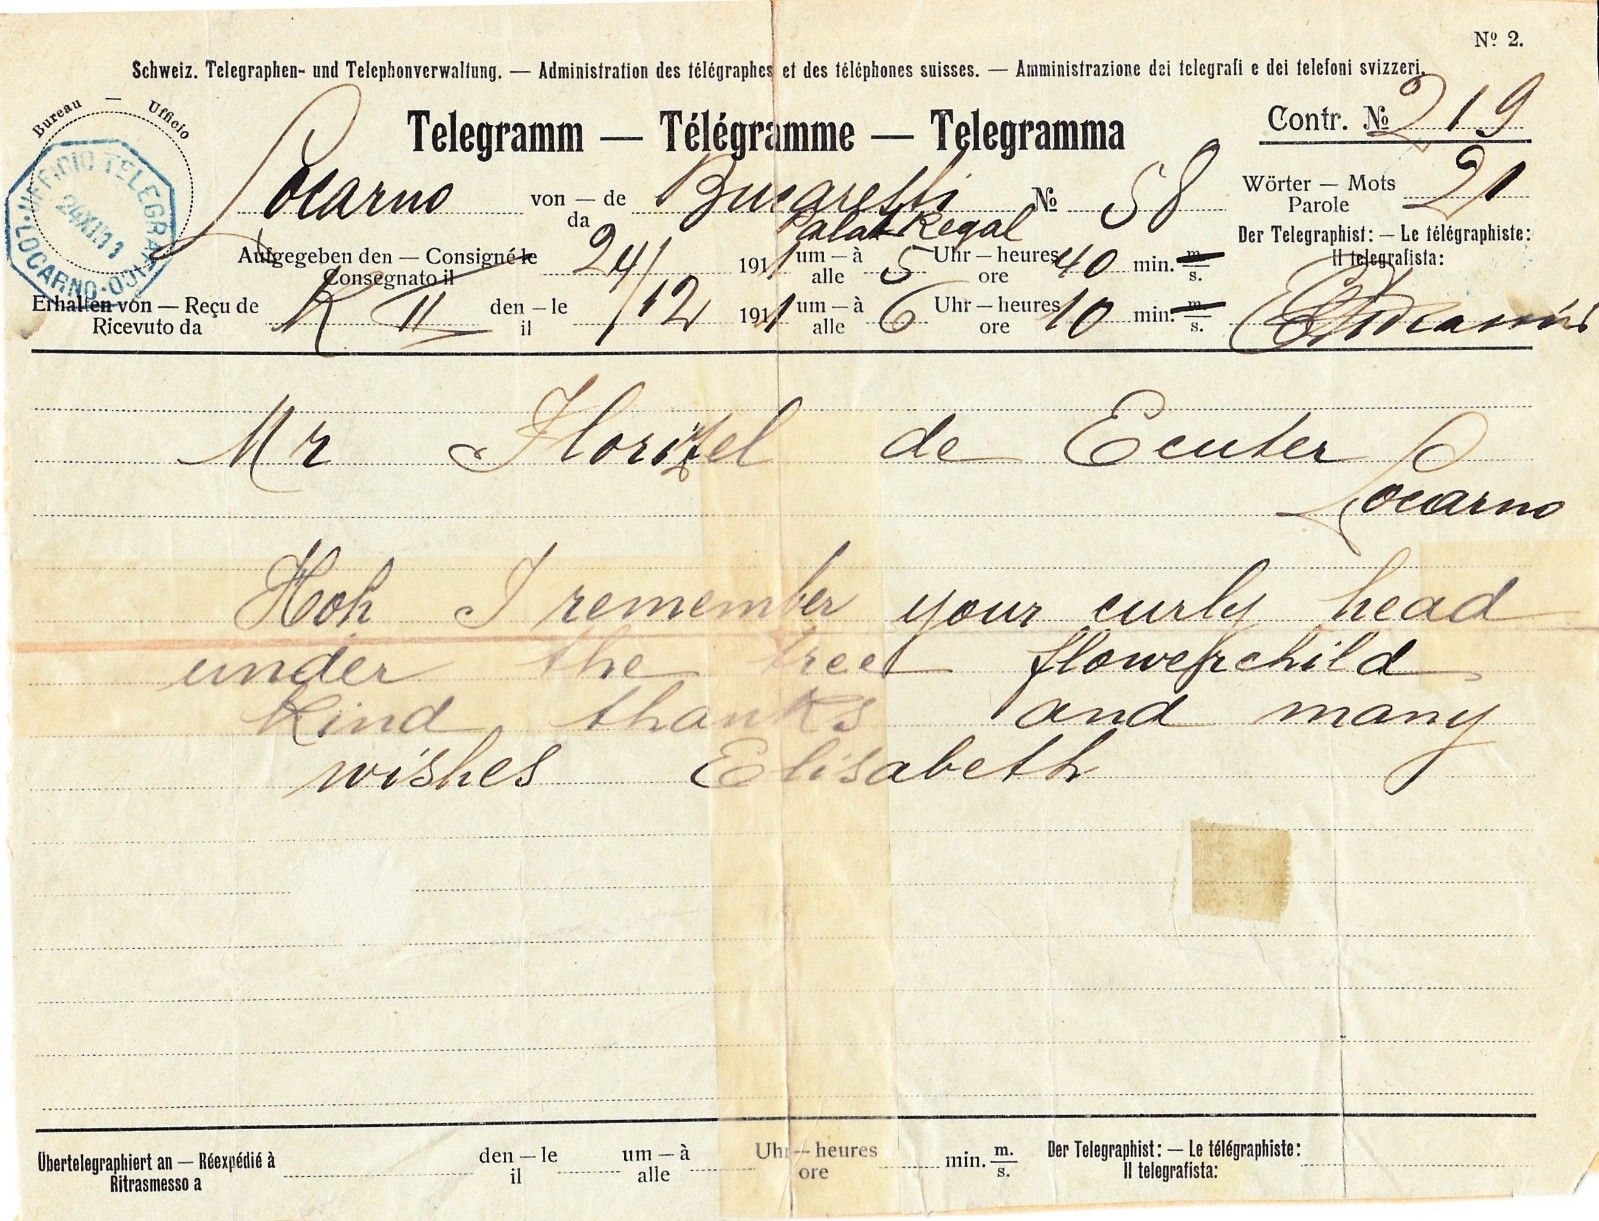 Nº 2.
Schweiz. Telegraphen- und Telephonverwaltung. — Administration des télégraphes et des téléphones suisses. — Amministrazione dei telegrafi e dei telefoni svizzeri.
Bureau — Ufficio
Telegramm — Télégramme — Telegramma
Contr. № 219
UFFICIO TELEGRAFICO
LOCARNO
24 XII 11
Locarno von — de Bucaresti № 58
da Palat Regal
Wörter — Mots 21
Parole
Aufgegeben den — Consigné le 24/ 1911 um — à 5 Uhr — heures 40 min. m.
Consegnato il alle ore s.
Der Telegraphist: — Le télégraphiste:
Il telegrafista:
Erhalten von — Reçu de K II den — le /12 1911 um — à 6 Uhr — heures 10 min. m.
Ricevuto da il alle ore s.
Mr Florizel de Ecuter
Locarno
Hoh I remember your curly head
under the tree flowerchild
Kind thanks and many
wishes Elisabeth
Übertelegraphiert an — Réexpédié à den — le um — à Uhr — heures min. m.
Ritrasmesso a il alle ore s.
Der Telegraphist: — Le télégraphiste:
Il telegrafista: